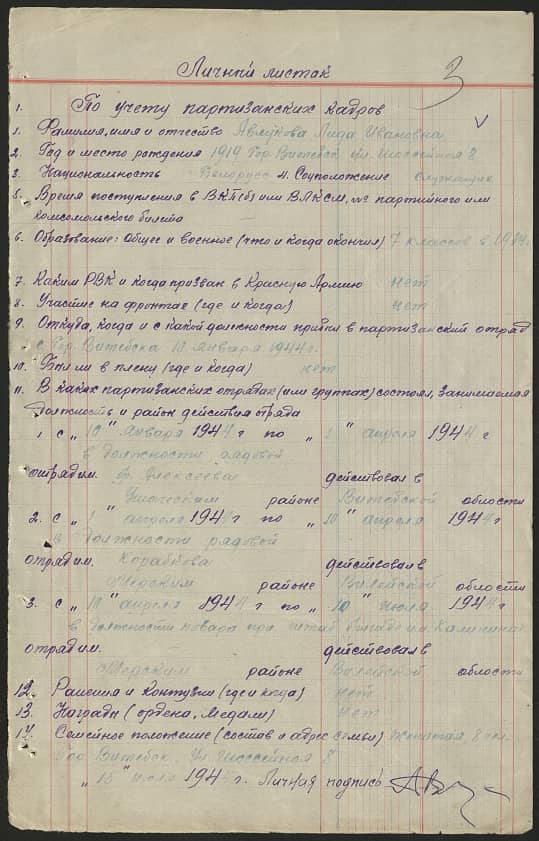 3
Личный листок
1. По учету партизанских кадров
1. Фамилия, имя и отчество Авлукова Лида Ивановна
2. Год и место рождения 1919 Гор. Витебск ул. Шоссейная 8
3. Национальность Белорусс 4. Соцположение служащие
5. Время поступления в ВКП(б) или ВЛКСМ, № партийного или
комсомольского билета –
6. Образование: Общее и военное (что и когда окончил) 7 классов в
7. Каким РВК и когда призван в Красную Армию нет
8. Участие на фронтах (где и когда) нет
9. Откуда, когда и с какой должности прибыл в партизанский отряд
с Гор. Витебска 10 Января 1944 г.
10. Был ли в плену (где и когда) нет
11. В каких партизанских отрядах (или группах) состоял, занимаемая
должность и район действия отряда
1 с „ 10 " Января 1944 г по „ 1 " апреля 1944 г
в должности рядовой
отряд им. бр. Алексеева действовал в
районе Витебской области
2. с „ 1 " апреля 1944 г по „ 10 " апреля 1944 г
в должности рядовой
отряд им. Кораблова действовал в
районе Вилейской области
3. с „ 10 " апреля 1944 г по „ 10 " июля 1944 г
в должности повара при штаб бригаде им Калинина
отряд им. действовал в
районе Вилейской области
12. Ранения и контузии (где и когда) нет
13. Награды (ордена, медали) нет
14. Семейное положение (состав и адрес семьи) женатая, 8 чел.
Гор. Витебск. Ул Шоссейная 8
„ 15 " июля 1944 г. Личная подпись